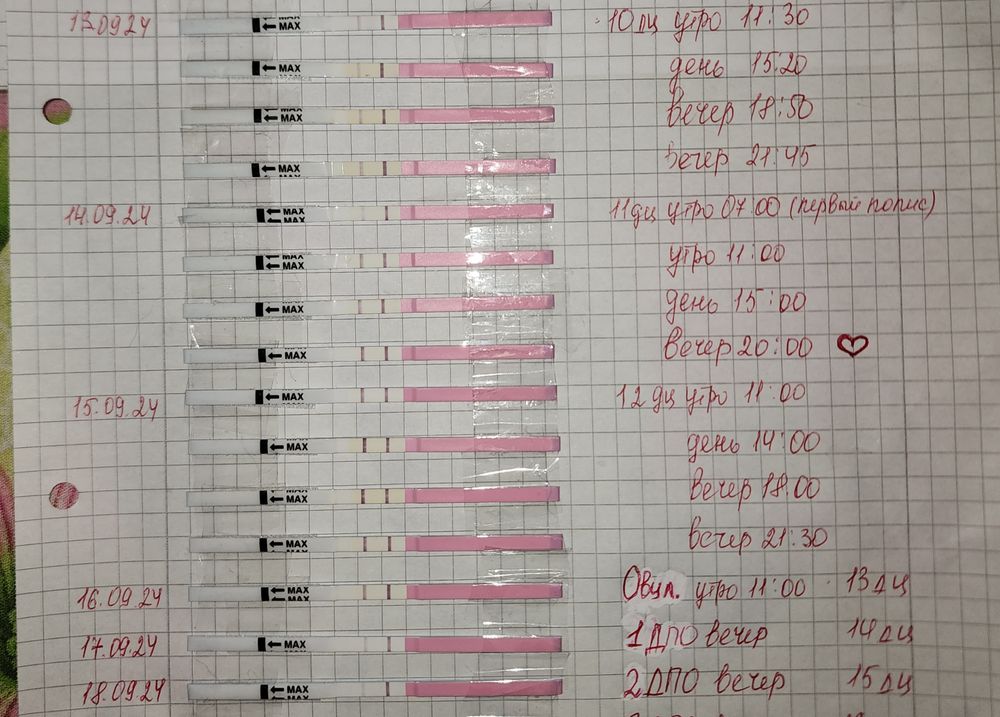 13.09.24 MAX MAX 10 дц утро 11:30
MAX день 15:20
MAX MAX вечер 18:50
MAX вечер 21:45
14.09.24 MAX MAX 11 дц утро 07:00 (первый попис)
MAX MAX утро 11:00
MAX MAX день 15:00
MAX вечер 20:00
15.09.24 MAX 12 дц утро 11:00
MAX MAX день 14:00
MAX MAX вечер 18:00
MAX вечер 21:30
16.09.24 MAX MAX Овул. утро 11:00 13 дц
17.09.24 MAX 1 ДПО вечер 14 дц
18.09.24 MAX 2 ДПО вечер 15 дц